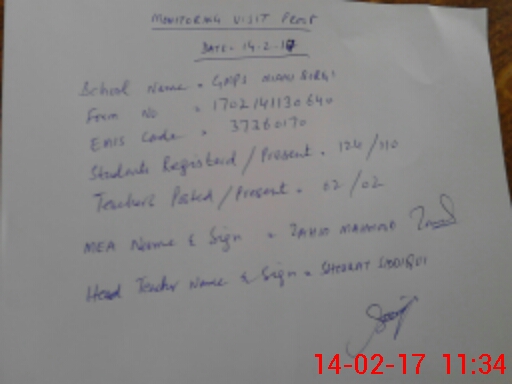 MONITORING VISIT PROF
DATE - 14.2.17
School Name = GMPS MIANI
Form No = 1702141130640
EMIS Code = 37360170
Students Registerd / Present = 124/110
Teachers Posted / Present = 02/02
MEA Name & Sign = ZAHID MAHMOOD
Head Teacher Name & Sign = SHOUKAT SIDDIQUI
14-02-17 11:34